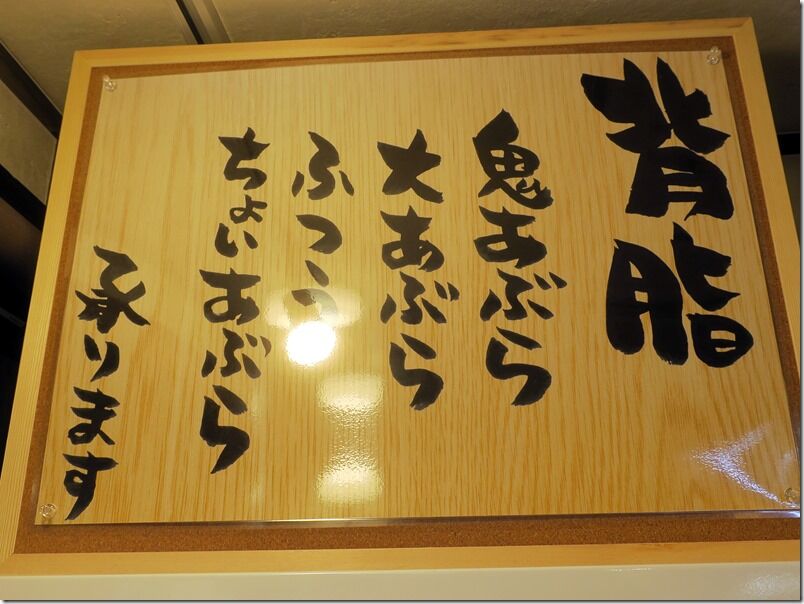 背脂
鬼あぶら
大あぶら
ふつう
ちょいあぶら
承ります